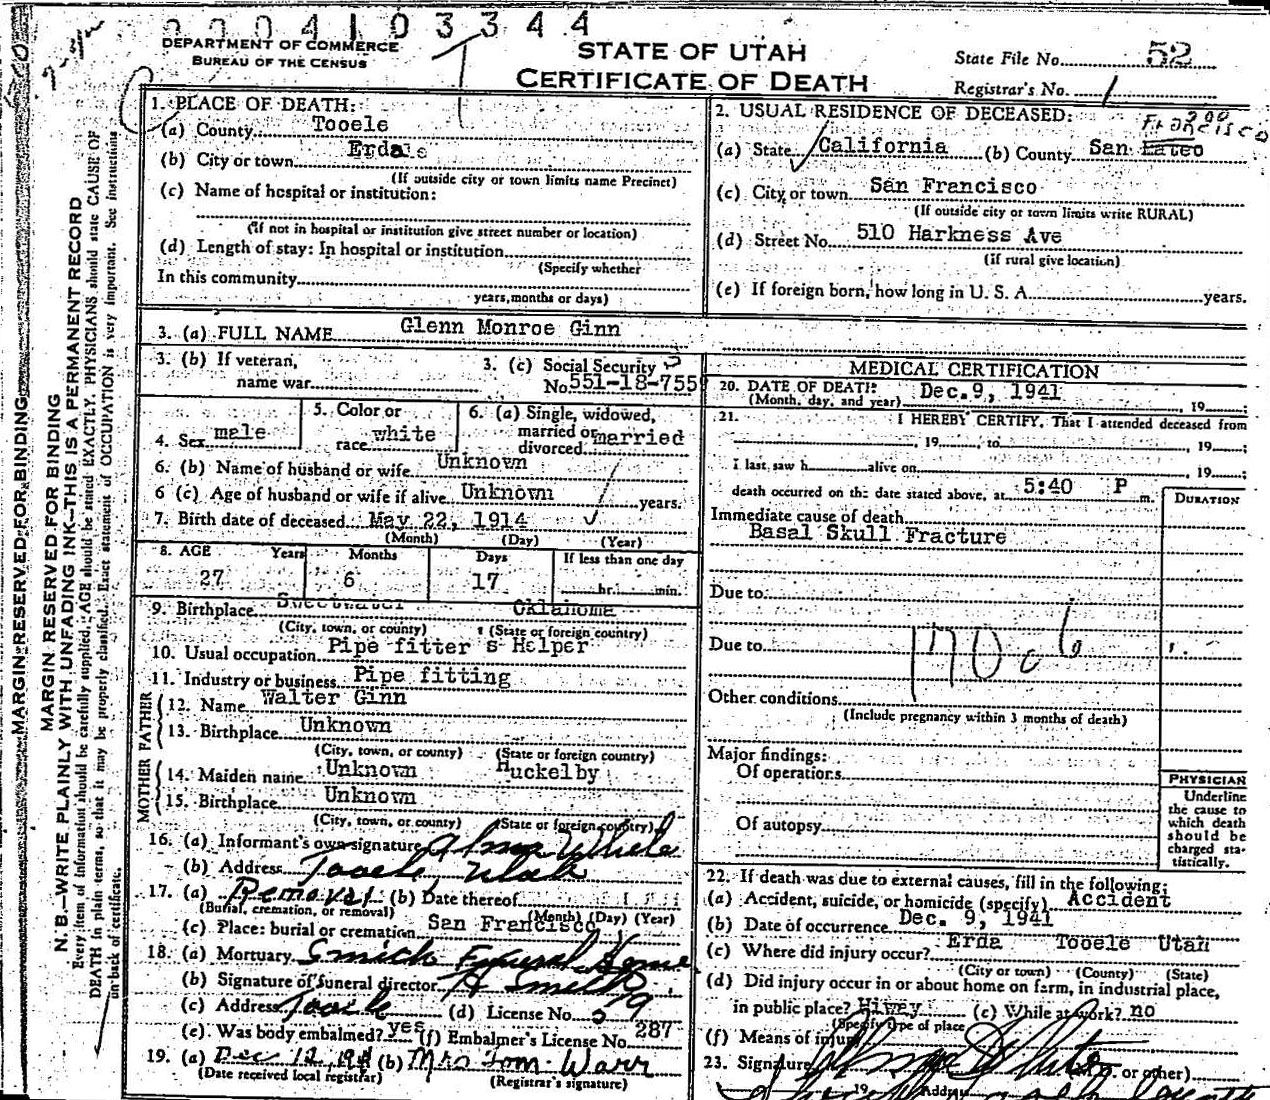 0004103344
DEPARTMENT OF COMMERCE
BUREAU OF THE CENSUS
STATE OF UTAH
CERTIFICATE OF DEATH
State File No. 52
Registrar's No. 1
MARGIN RESERVED FOR BINDING
MARGIN RESERVED FOR BINDING
N. B.—WRITE PLAINLY WITH UNFADING INK—THIS IS A PERMANENT RECORD
Every item of information should be carefully supplied. AGE should be stated EXACTLY. PHYSICIANS should state CAUSE OF
DEATH in plain terms, so that it may be properly classified. Exact statement of OCCUPATION is very important. See instructions
on back of certificate.
1. PLACE OF DEATH:
(a) County Tooele
(b) City or town Erda
(If outside city or town limits name Precinct)
(c) Name of hospital or institution:
(If not in hospital or institution give street number or location)
(d) Length of stay: In hospital or institution
(Specify whether
In this community
years, months or days)
2. USUAL RESIDENCE OF DECEASED:
Francisco
(a) State California (b) County San Mateo
(c) City or town San Francisco
(If outside city or town limits write RURAL)
(d) Street No. 510 Harkness Ave
(If rural give location)
(e) If foreign born, how long in U. S. A. years.
3. (a) FULL NAME Glenn Monroe Ginn
3. (b) If veteran,
name war
3. (c) Social Security
No. 551-18-755
4. Sex male
5. Color or
race white
6. (a) Single, widowed,
married or
divorced married
6. (b) Name of husband or wife Unknown
6 (c) Age of husband or wife if alive Unknown years.
7. Birth date of deceased May 22, 1914
(Month) (Day) (Year)
8. AGE Years Months Days If less than one day
27 6 17 hr. min.
9. Birthplace Sweetwater Oklahoma
(City, town, or county) (State or foreign country)
10. Usual occupation Pipe fitter s Helper
11. Industry or business Pipe fitting
FATHER
12. Name Walter Ginn
13. Birthplace Unknown
(City, town, or county) (State or foreign country)
MOTHER
14. Maiden name Unknown Huckelby
15. Birthplace Unknown
(City, town, or county) (State or foreign country)
16. (a) Informant's own signature Alma White
(b) Address Tooele, Utah
17. (a) Removal (b) Date thereof
(Burial, cremation, or removal) (Month) (Day) (Year)
(c) Place: burial or cremation San Francisco
18. (a) Mortuary Smith Funeral Home
(b) Signature of funeral director A Smith
(c) Address Tooele (d) License No. 59
(e) Was body embalmed? yes (f) Embalmer's License No. 287
19. (a) Dec 12, 1941 (b) Mrs Tom Warr
(Date received local registrar) (Registrar's signature)
MEDICAL CERTIFICATION
20. DATE OF DEATH: Dec. 9, 1941
(Month, day, and year) , 19
21. I HEREBY CERTIFY, That I attended deceased from
, 19 to , 19 ;
I last saw h alive on , 19 ;
death occurred on the date stated above, at 5:40 P m.
DURATION
Immediate cause of death
Basal Skull Fracture
Due to
Due to
170c6
Other conditions
(Include pregnancy within 3 months of death)
Major findings:
Of operations
Of autopsy
PHYSICIAN
Underline
the cause to
which death
should be
charged sta-
tistically.
22. If death was due to external causes, fill in the following:
(a) Accident, suicide, or homicide (specify) Accident
(b) Date of occurrence Dec. 9, 1941
(c) Where did injury occur? Erda Tooele Utah
(City or town) (County) (State)
(d) Did injury occur in or about home on farm, in industrial place,
in public place? Hiwey (e) While at work? no
(Specify type of place
(f) Means of injury
23. Signature Alma White (M.D. or other)
19 Address